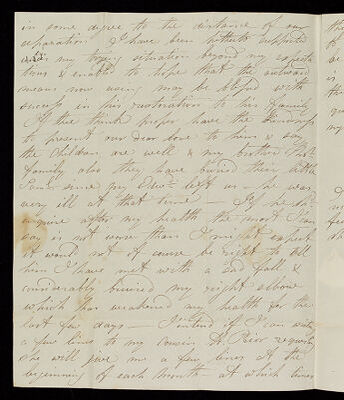 in some degree to the distance of our
separation I have been hitherto supported
in my trying situation beyond my expecta
tions & enabled to hope that the outward
means now using may be blessed with
success in his restoration to his family
If thee thinks proper have the kindness
to present our dear love to him & say
the children are well & my brother
family also they have buried their little
since my left us — he was
very ill at that time — If he
enquire after my health the most I can
say is not worse than I might expect
it would not of course be right to tell
him I have met with a sad fall &
considerably bruised my right elbow
which has weakened my health for the
last few days — I intend if I can write
a few lines to my cousin requesting
she will give me a few lines at the
beginning of each month at which time